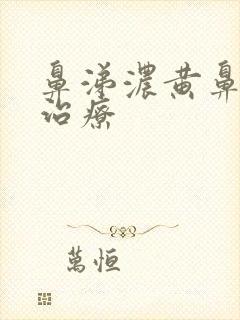 鼻涕濃黃鼻
治療
萬恒